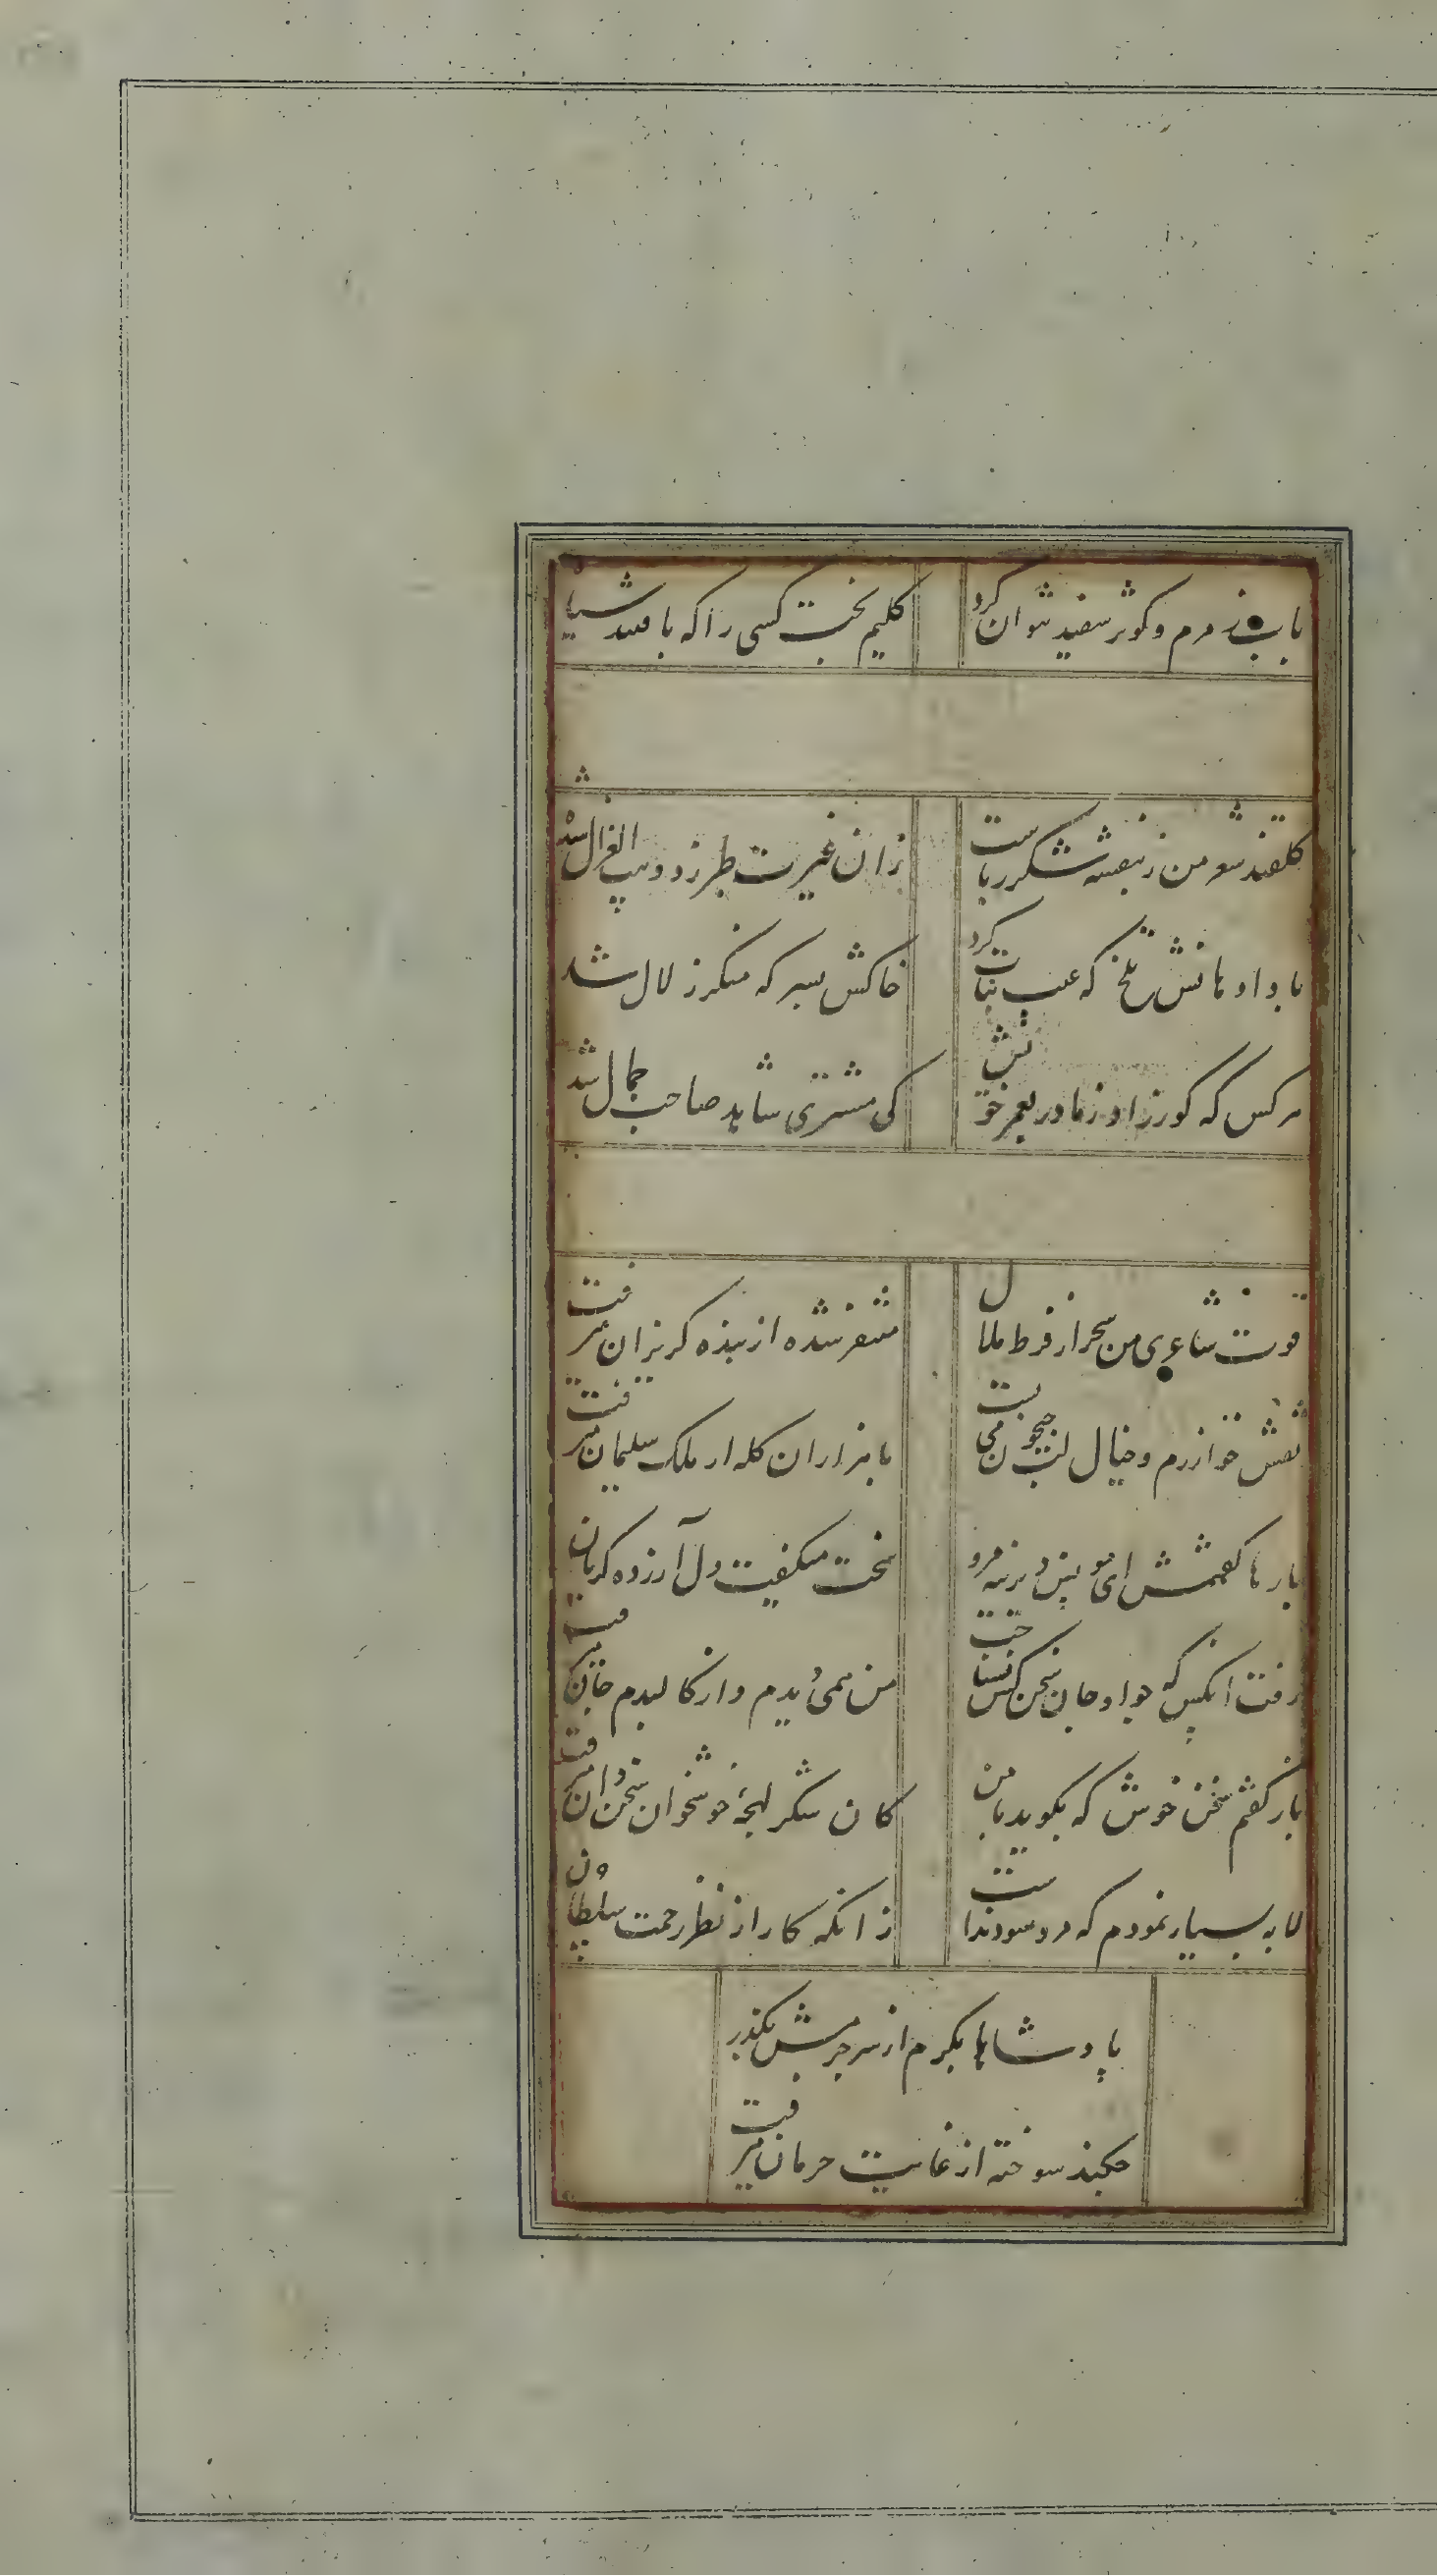 بآب زمزم و کوثر سفید نتوان کرد
کلیم بخت کسی را که بافتند سیاه
کلقند شعر من ز بنفشه شکر رباست
زان غیرت طبرزد و مب الغزال شد
بادا دهانش تلخ که عیب نبات کرد
خاکش بسر که منکر زلال شد
هر کس که کور زاد ز مادر بعمر خویش
کی مشتری شاهد صاحب جمال شد
قوت شاعری من سحر از فرط ملال
متنفر شده از بنده کریزان میرفت
نقش خوارزم و خیال لب جیحون می بست
با هزاران کله از ملک سلیمان میرفت
بارها کفتمش ای مونس دیرینه مرو
سخت میکفت و دل آزرده و کریان
رفت انکس که جز او جان سخن کس نشناخت
من همی دیدم و از کالبدم جان میرفت
باز کفتم سخن خوش که بکوید با من
کان شکر لهجه خوشخوان سخن دان میرفت
لابه بسیار نمودم که مرو سود نداشت
زانکه کار از نظر رحمت سلطان
پادشاها بکرم از سر جرمش بکذر
چکند سوخته از غایت حرمان میرفت